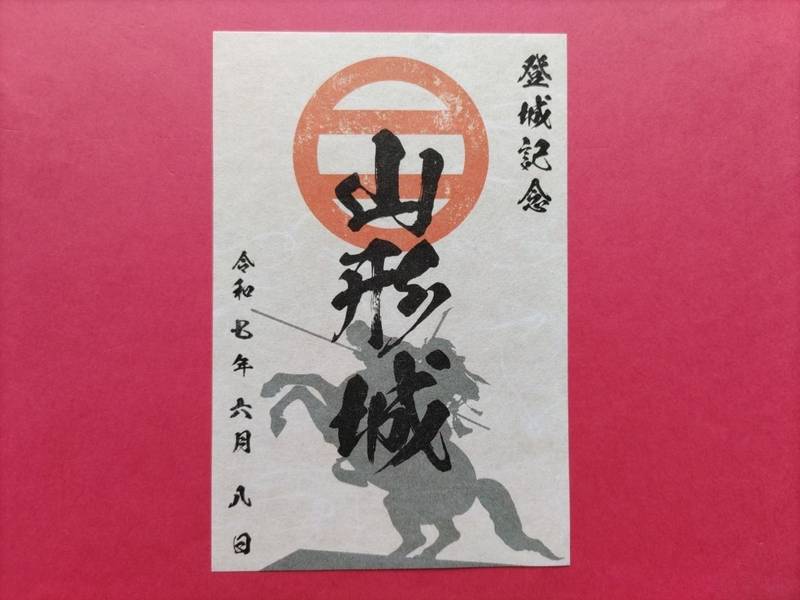 登城記念
山形城
令和七年六月八日